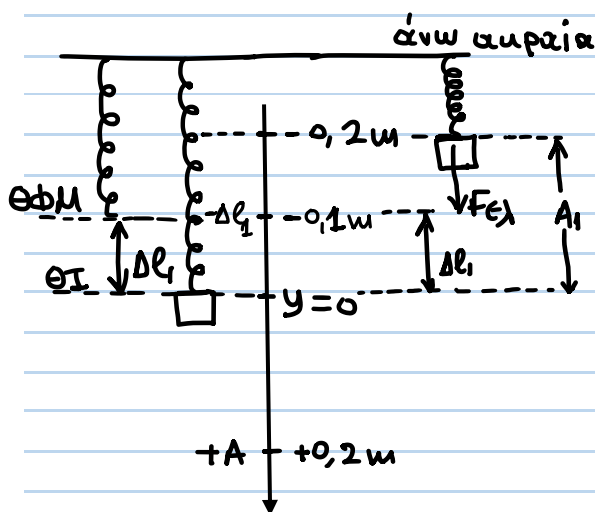 άνω ακραία
- 0,2 m
ΘΦΜ
-Δl₁
-0,1m
Fελ
A₁
ΘΙ
Δl₁
Δl₁
y=0
+A
+0,2 m